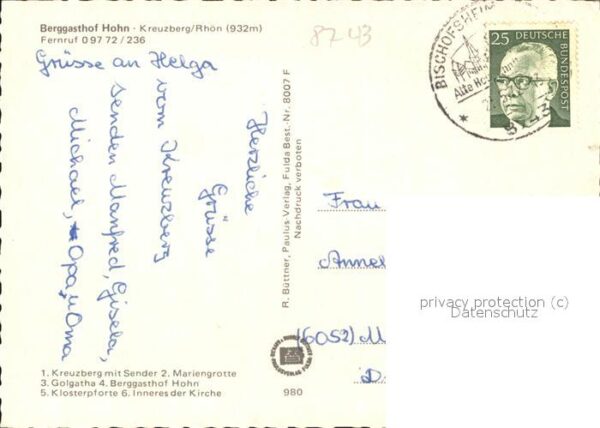 Berggasthof Hohn · Kreuzberg/Rhön (932m)
Fernruf 0 97 72 / 236
8743
Grüsse an Helga
Herzliche
Grüsse
vom Kreuzberg
senden Manfred, Gisela,
Michael, Opa u Oma
R. Büttner, Paulus-Verlag, Fulda Best.-Nr. 8007 F
Nachdruck verboten
BISCHOFSHEIM
Alte
8743
25 DEUTSCHE
BUNDESPOST
Frau
Annel
(6052) M
D
privacy protection (c)
Datenschutz
1. Kreuzberg mit Sender 2. Mariengrotte
3. Golgatha 4. Berggasthof Hohn
5. Klosterpforte 6. Inneres der Kirche
980